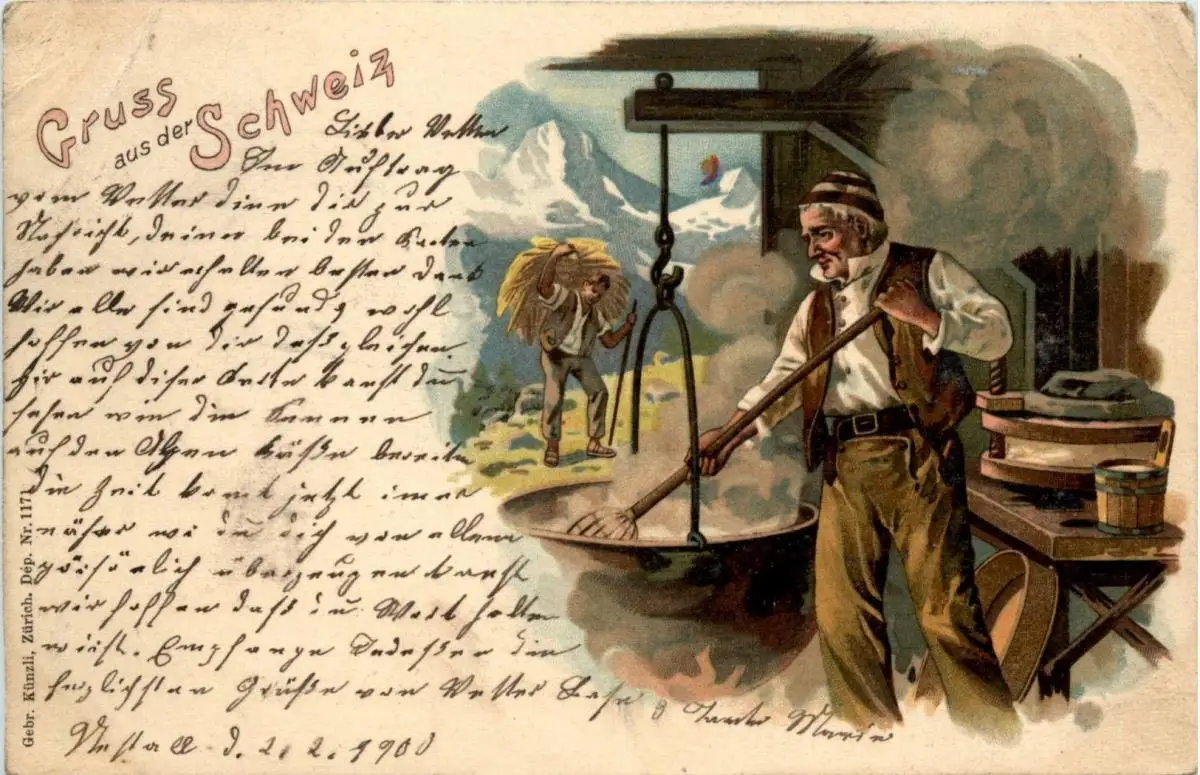 Gruss
aus der
Schweiz
Lieber Vetter
Im Auftrag
vom Vetter diene dir zur
Nachricht, deiner beiden Karten
haben wir erhalten besten Dank
Wir alle sind gesund & wohl
hoffen von dir dasgleichen
hir auf diser Carte kanst du
sehen wie die Sennen
auf den Alpen Käße bereiten
die Zeit komt jetzt imer
näher wo du dich von allem
übezeugen kanst
wir hoffen daß du Wort halten
wirst. Empfange die
herzlichsten Grüße von Vetter Base
& Tante Marie
d. 2. 2. 1900
Gebr. Künzli, Zürich. Dep. Nr. 1171